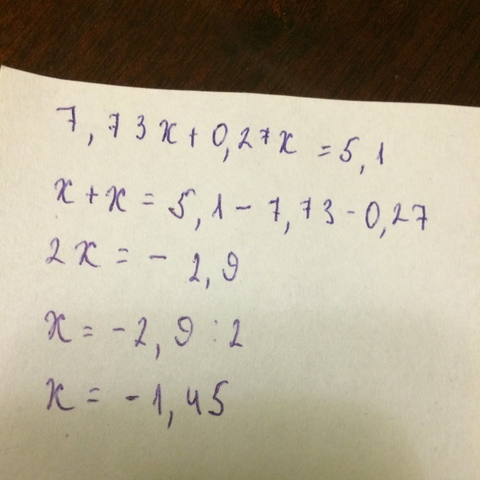 7,73x+0,27x=5,1
x+x=5,1-7,73-0,27
2x=-2,9
x=-2,9:2
x=-1,45